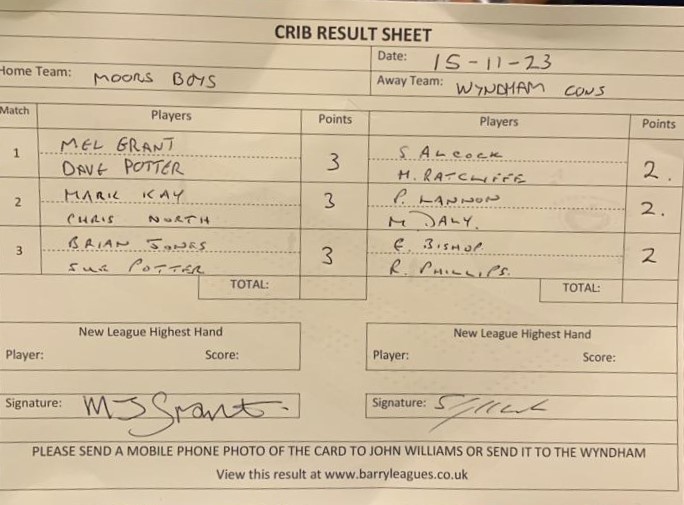 CRIB RESULT SHEET
Date: 15-11-23
Home Team: MOORS BOYS
Away Team: WYNDHAM CONS
Match Players Points Players Points
1 MEL GRANT 3 S ALCOCK 2.
DAVE POTTER H. RATCLIFFE
2 MARK KAY 3 P. LANNON 2.
CHRIS NORTH M DALY.
3 BRIAN JONES 3 E. BISHOP. 2
SUE POTTER R. PHILLIPS.
TOTAL: TOTAL:
New League Highest Hand New League Highest Hand
Player: Score: Player: Score:
Signature: MJ Grant. Signature:
PLEASE SEND A MOBILE PHONE PHOTO OF THE CARD TO JOHN WILLIAMS OR SEND IT TO THE WYNDHAM
View this result at www.barryleagues.co.uk